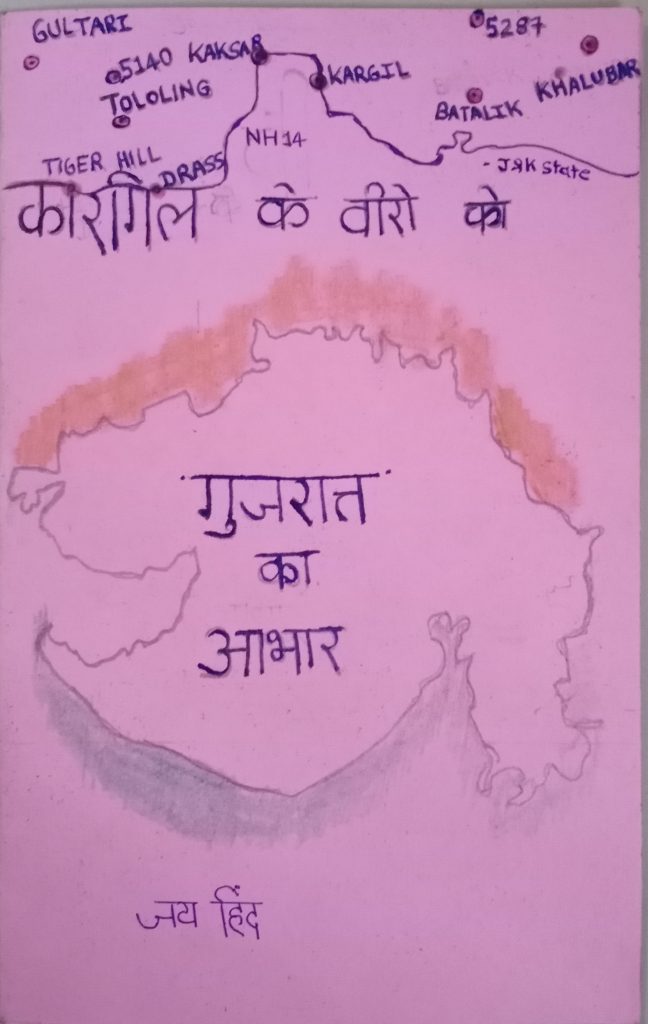 GULTARI
5287
5140 KAKSAR
KARGIL
KHALUBAR
TOLOLING
BATALIK
NH14
TIGER HILL
DRASS
- J&K State
कारगिल के वीरो को
गुजरात
का
आभार
जय हिंद